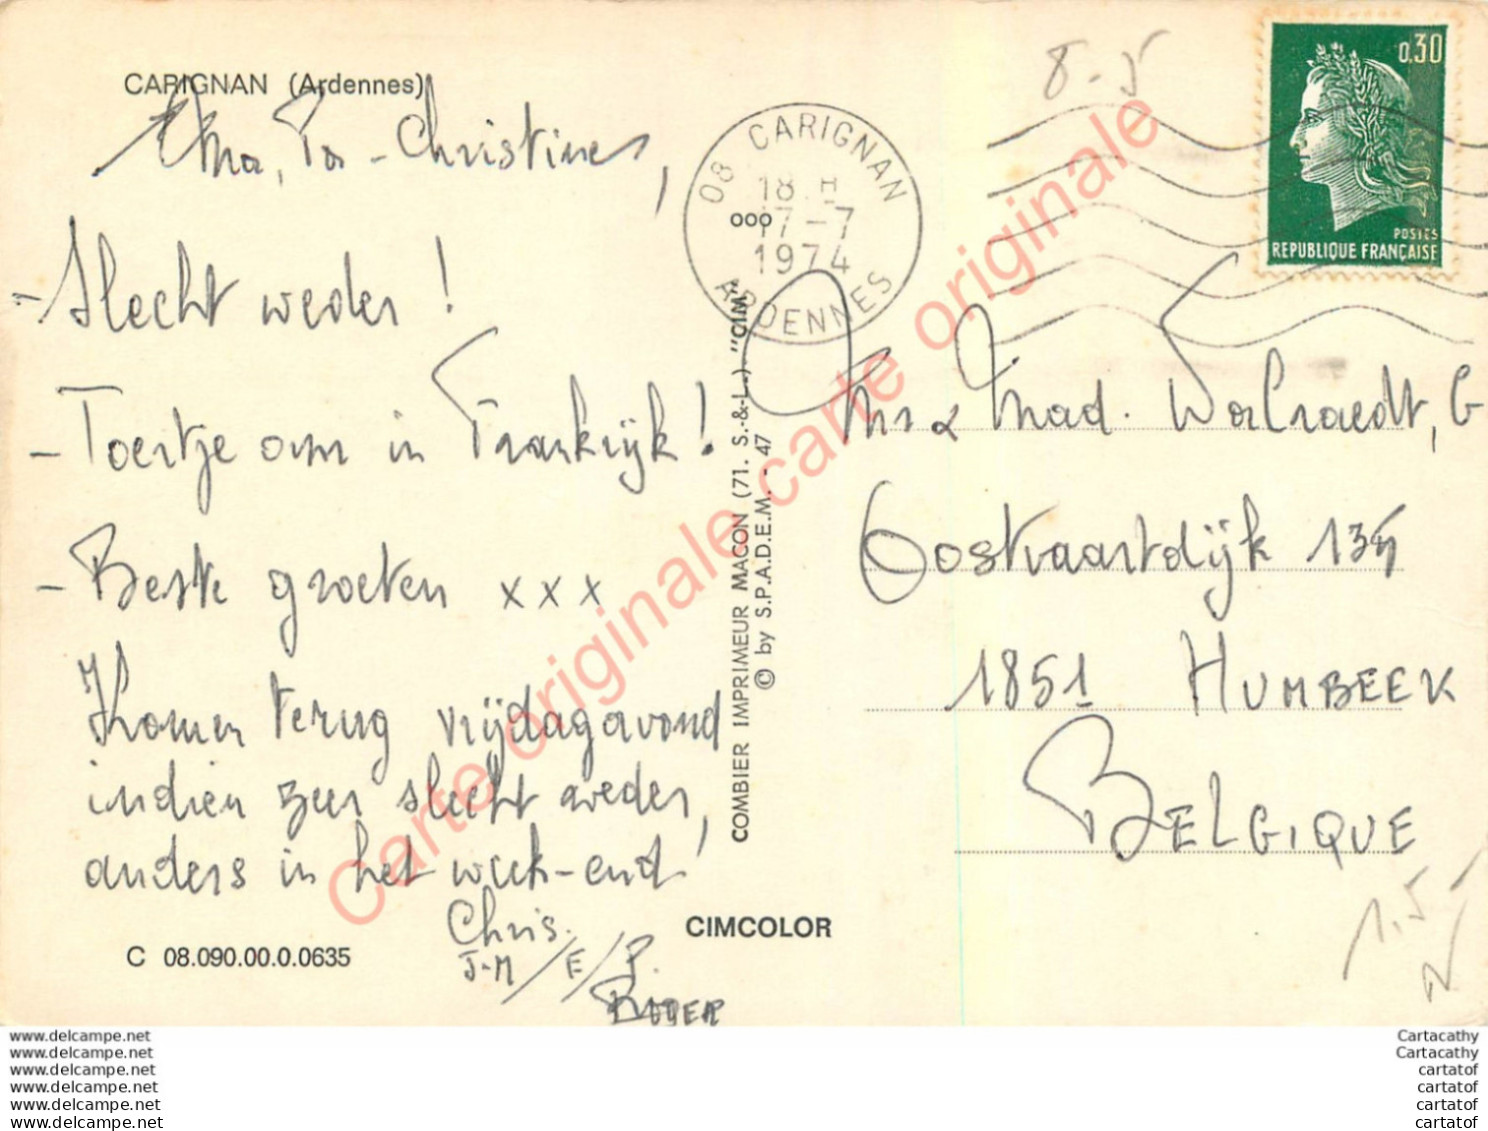 CARIGNAN (Ardennes)
Ma, Pa - Christine,
- Slecht weder!
- Toertje om in Frankrijk!
- Beste groeten xxx
Komen terug vrijdagavond
indien zeer slecht weder,
anders in het week-end!
Chris.
J-M/E/P.
ROGER
C 08.090.00.0.0635
CIMCOLOR
COMBIER IMPRIMEUR MACON (71. S.-&-L.) "CIM"
© by S.P.A.D.E.M. - 47
08 CARIGNAN
18 H
17-7
1974
ARDENNES
000
8-5
0,30
POSTES
REPUBLIQUE FRANÇAISE
Mr & Mad. Walraedt, G
Oostvaartdijk 135
1851 HUMBEEK
BELGIQUE
1.5
Carte originale carte originale carte originale
www.delcampe.net
www.delcampe.net
www.delcampe.net
www.delcampe.net
www.delcampe.net
www.delcampe.net
Cartacathy
Cartacathy
cartatof
cartatof
cartatof
cartatof